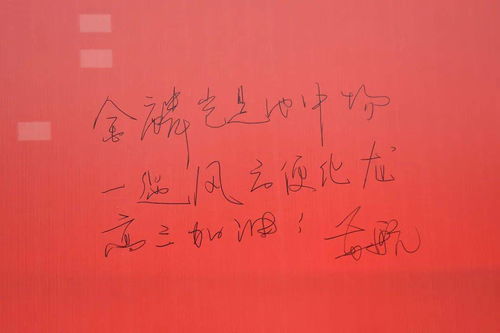 金麟岂是池中物
一遇风云便化龙
高三加油！